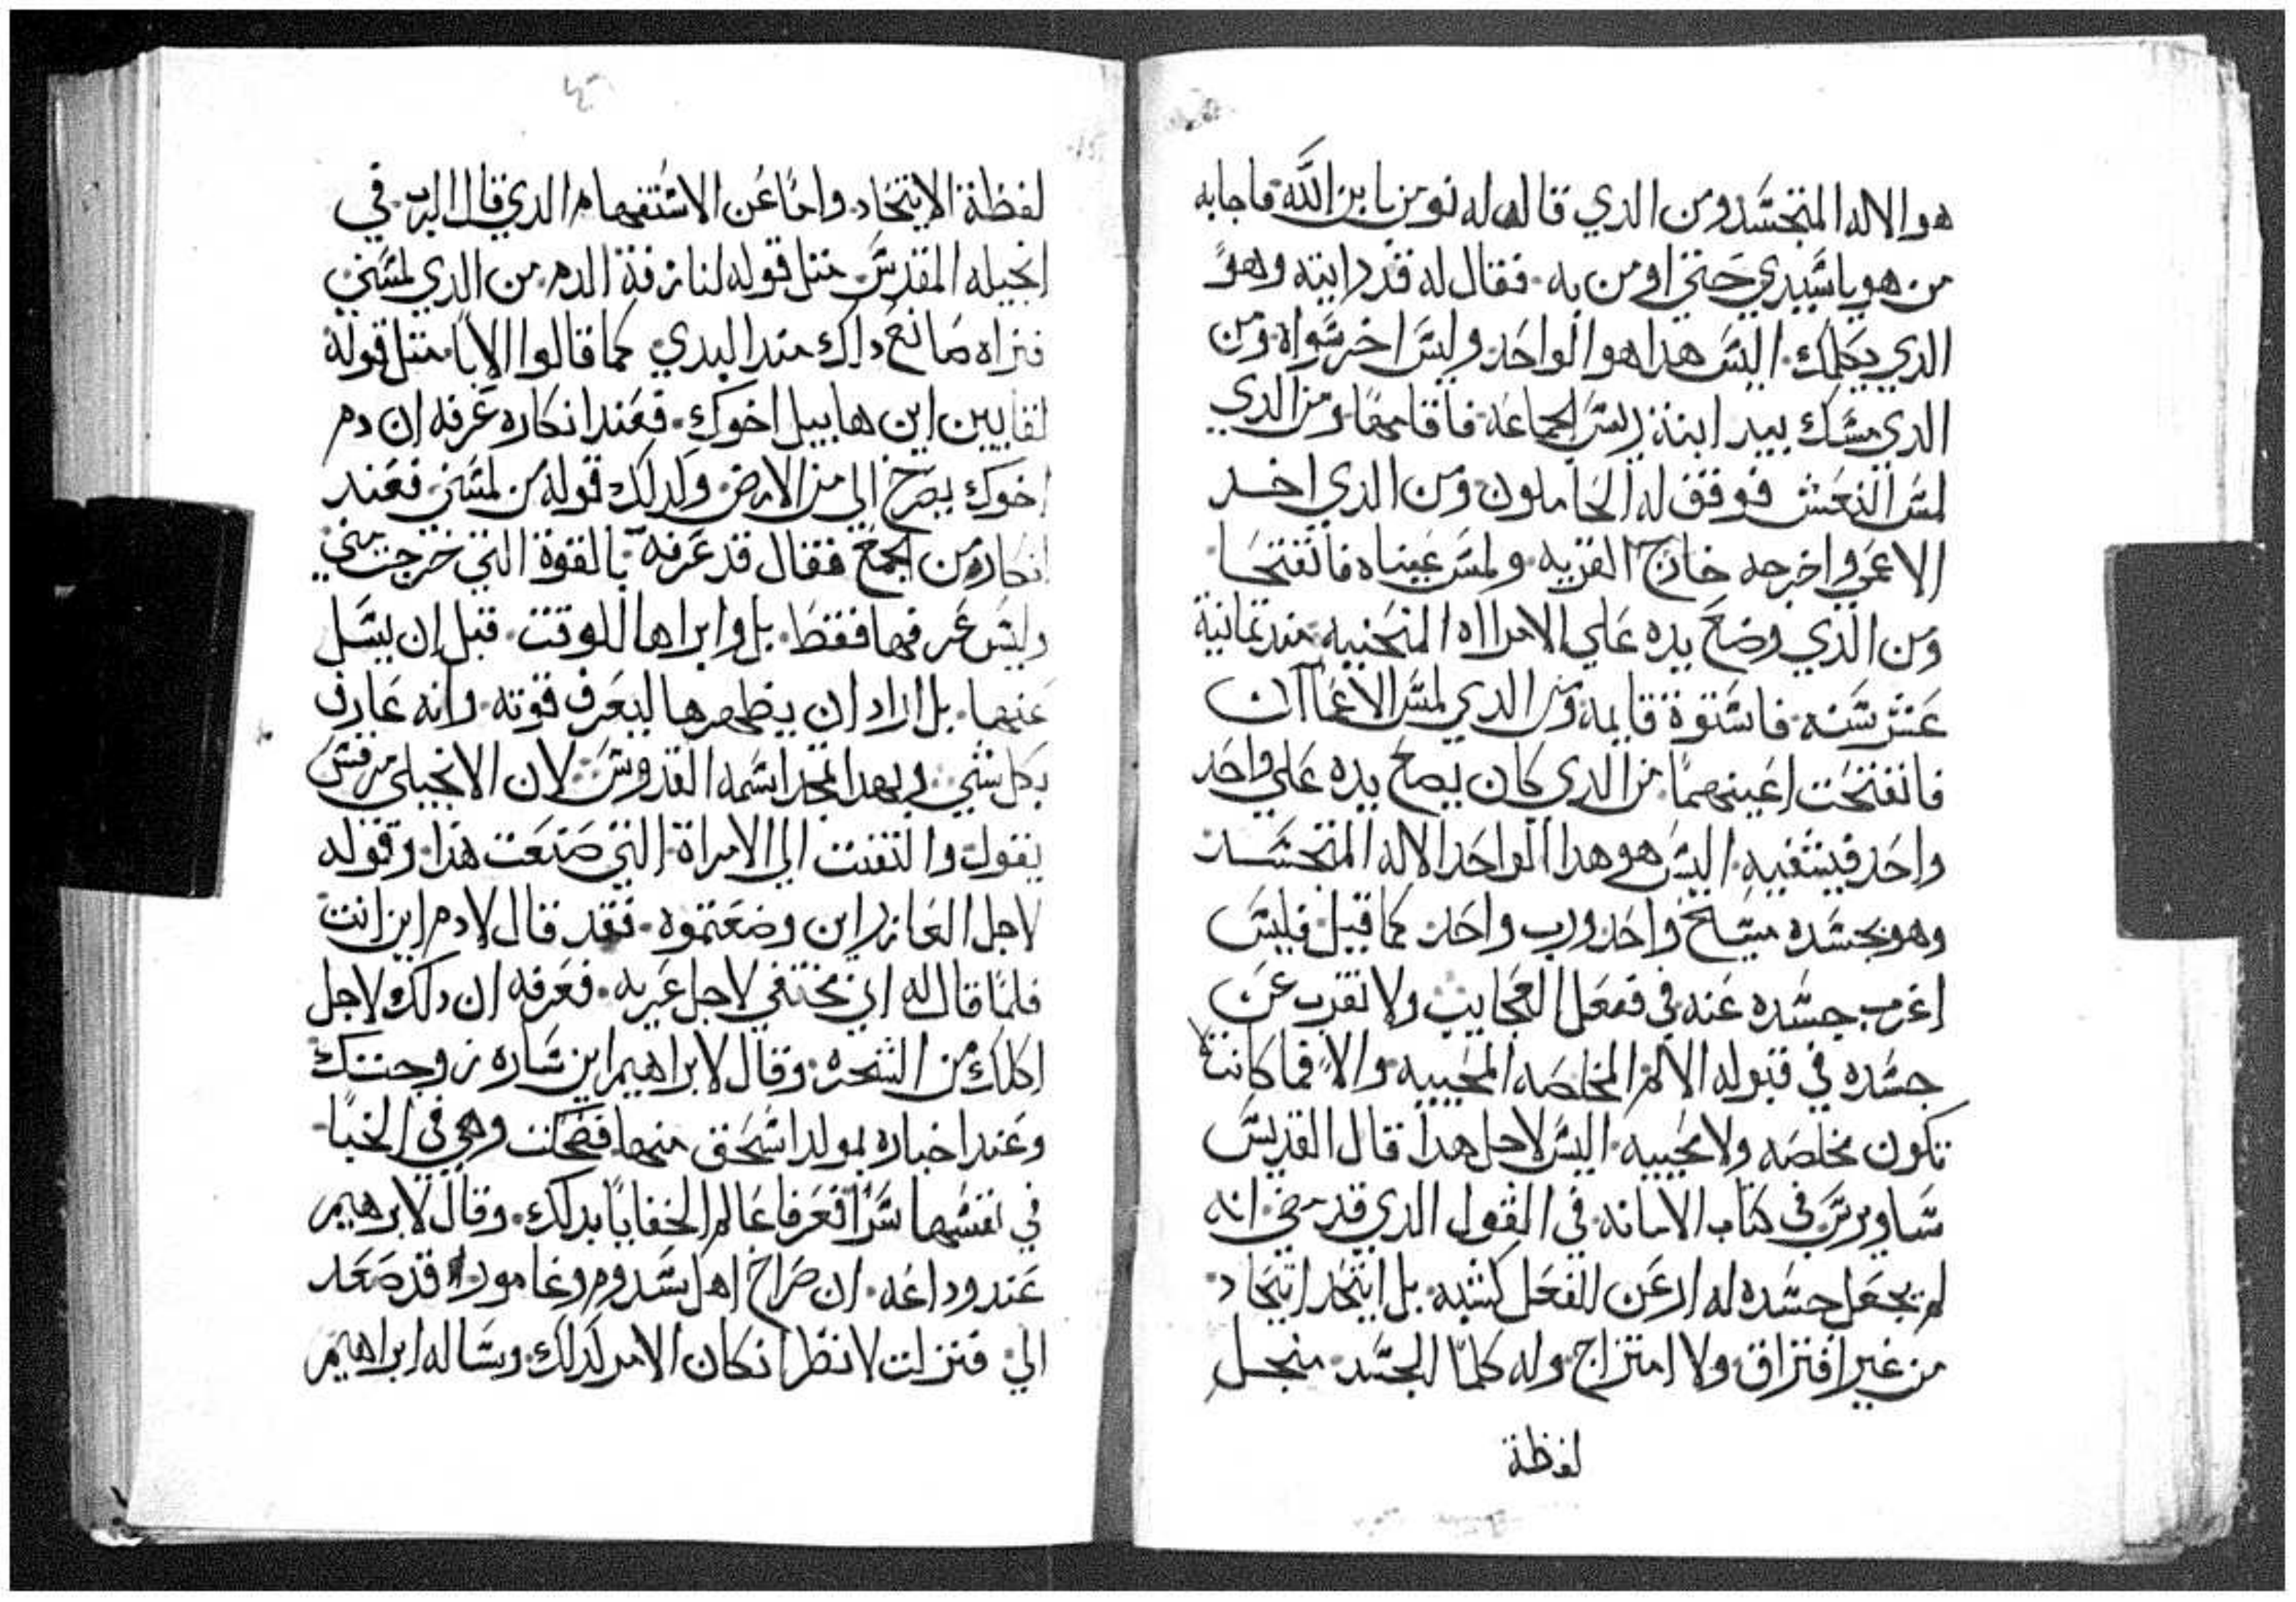 هو الاله المتجسد ومن الدي قاله له نومن بابن الله فاجابه
من هو ياسيدي حتي اومن به. فقال له قد رايته وهو
الدي يكلمك. اليس هدا هو الواحد وليس اخر سواه ومن
الدي مسك بيد ابنة ريس الجماعه فاقامها ومن الدي
لمس النعش فوقف له الحاملون ومن الدي اخد
الاعمي واخرجه خارج القريه. ولمس عيناه فانفتحا.
ومن الدي وضع يده علي الامراه المنحنيه مند تمانية
عشر سنه. فاستوة قايمه ومن الدي لمس الاعماان
فانفتحت اعينهما. من الدي كان يضع يده علي واحد
واحد فيشفيه. اليس هو هدا الواحد الاله المتجسد
وهو بجسده مسيح واحد ورب واحد. كما قيل. فليس
اغرب جسده عنه في فعل العجايب ولا تقرب عن
جسده في قبوله الالام المخلصه المحييه والا فما كانت
تكون مخلصه ولا محييه. اليس لاجل هدا قال القديس
ساويرس في كتاب الامانه في القول الدي قد مضي انه
لم يجعل جسده له ار عن الفعل كشبه. بل اتحد اتحاد
من غير افتراق ولا امتزاج. وله كلما للجسد. منجل
لفظة
لفظة الاتحاد. واما عن الاستفهام الدي قال الرب في
انجيله المقدس متل قوله لنازفة الدم. من الدي لمسني
فنراه صانع داك مند البدي كما قالوا الابا. متل قوله
لقايين اين هابيل اخوك. فعند انكاره عرفه ان دم
اخوك يصرخ الي من الارض. وكدلك قوله من لمسني. فعند
انكاره من الجمع فقال قد عرفه بالقوة التي خرجت مني
وليس عرفها فقط. بل وابراها للوقت. قبل ان يسل
عنها. بل اراد ان يظهرها ليعرف قوته. وانه عارف
بكل شي. وبهدا تمجد اسمه القدوس. لان الانجيلي مرقس
يقول. والتفت الي الامراة التي صنعت هدا. وقوله
لاجل العازر اين وضعتموه. فقد قال لادم اين انت
فلما قال له اني مختفي لاجل عريه. فعرفه ان دلك لاجل
اكلك من الشجره. وقال لابراهيم اين ساره زوجتك
وعند اخباره بمولد اسحق منها فضحكت وهي في الخبا.
في نفسها سرا فعرفا عالم الخفايا بدلك. وقال لابرهيم
عند وداعه. ان صراخ اهل سدوم وغامورا قد صعد
الي. فنزلت لانظر ان كان الامر كدلك. وساله ابراهيم